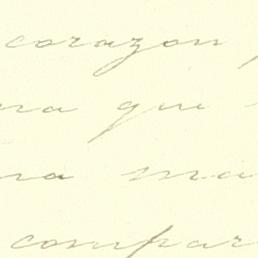 corazon
na que
na ma
compar